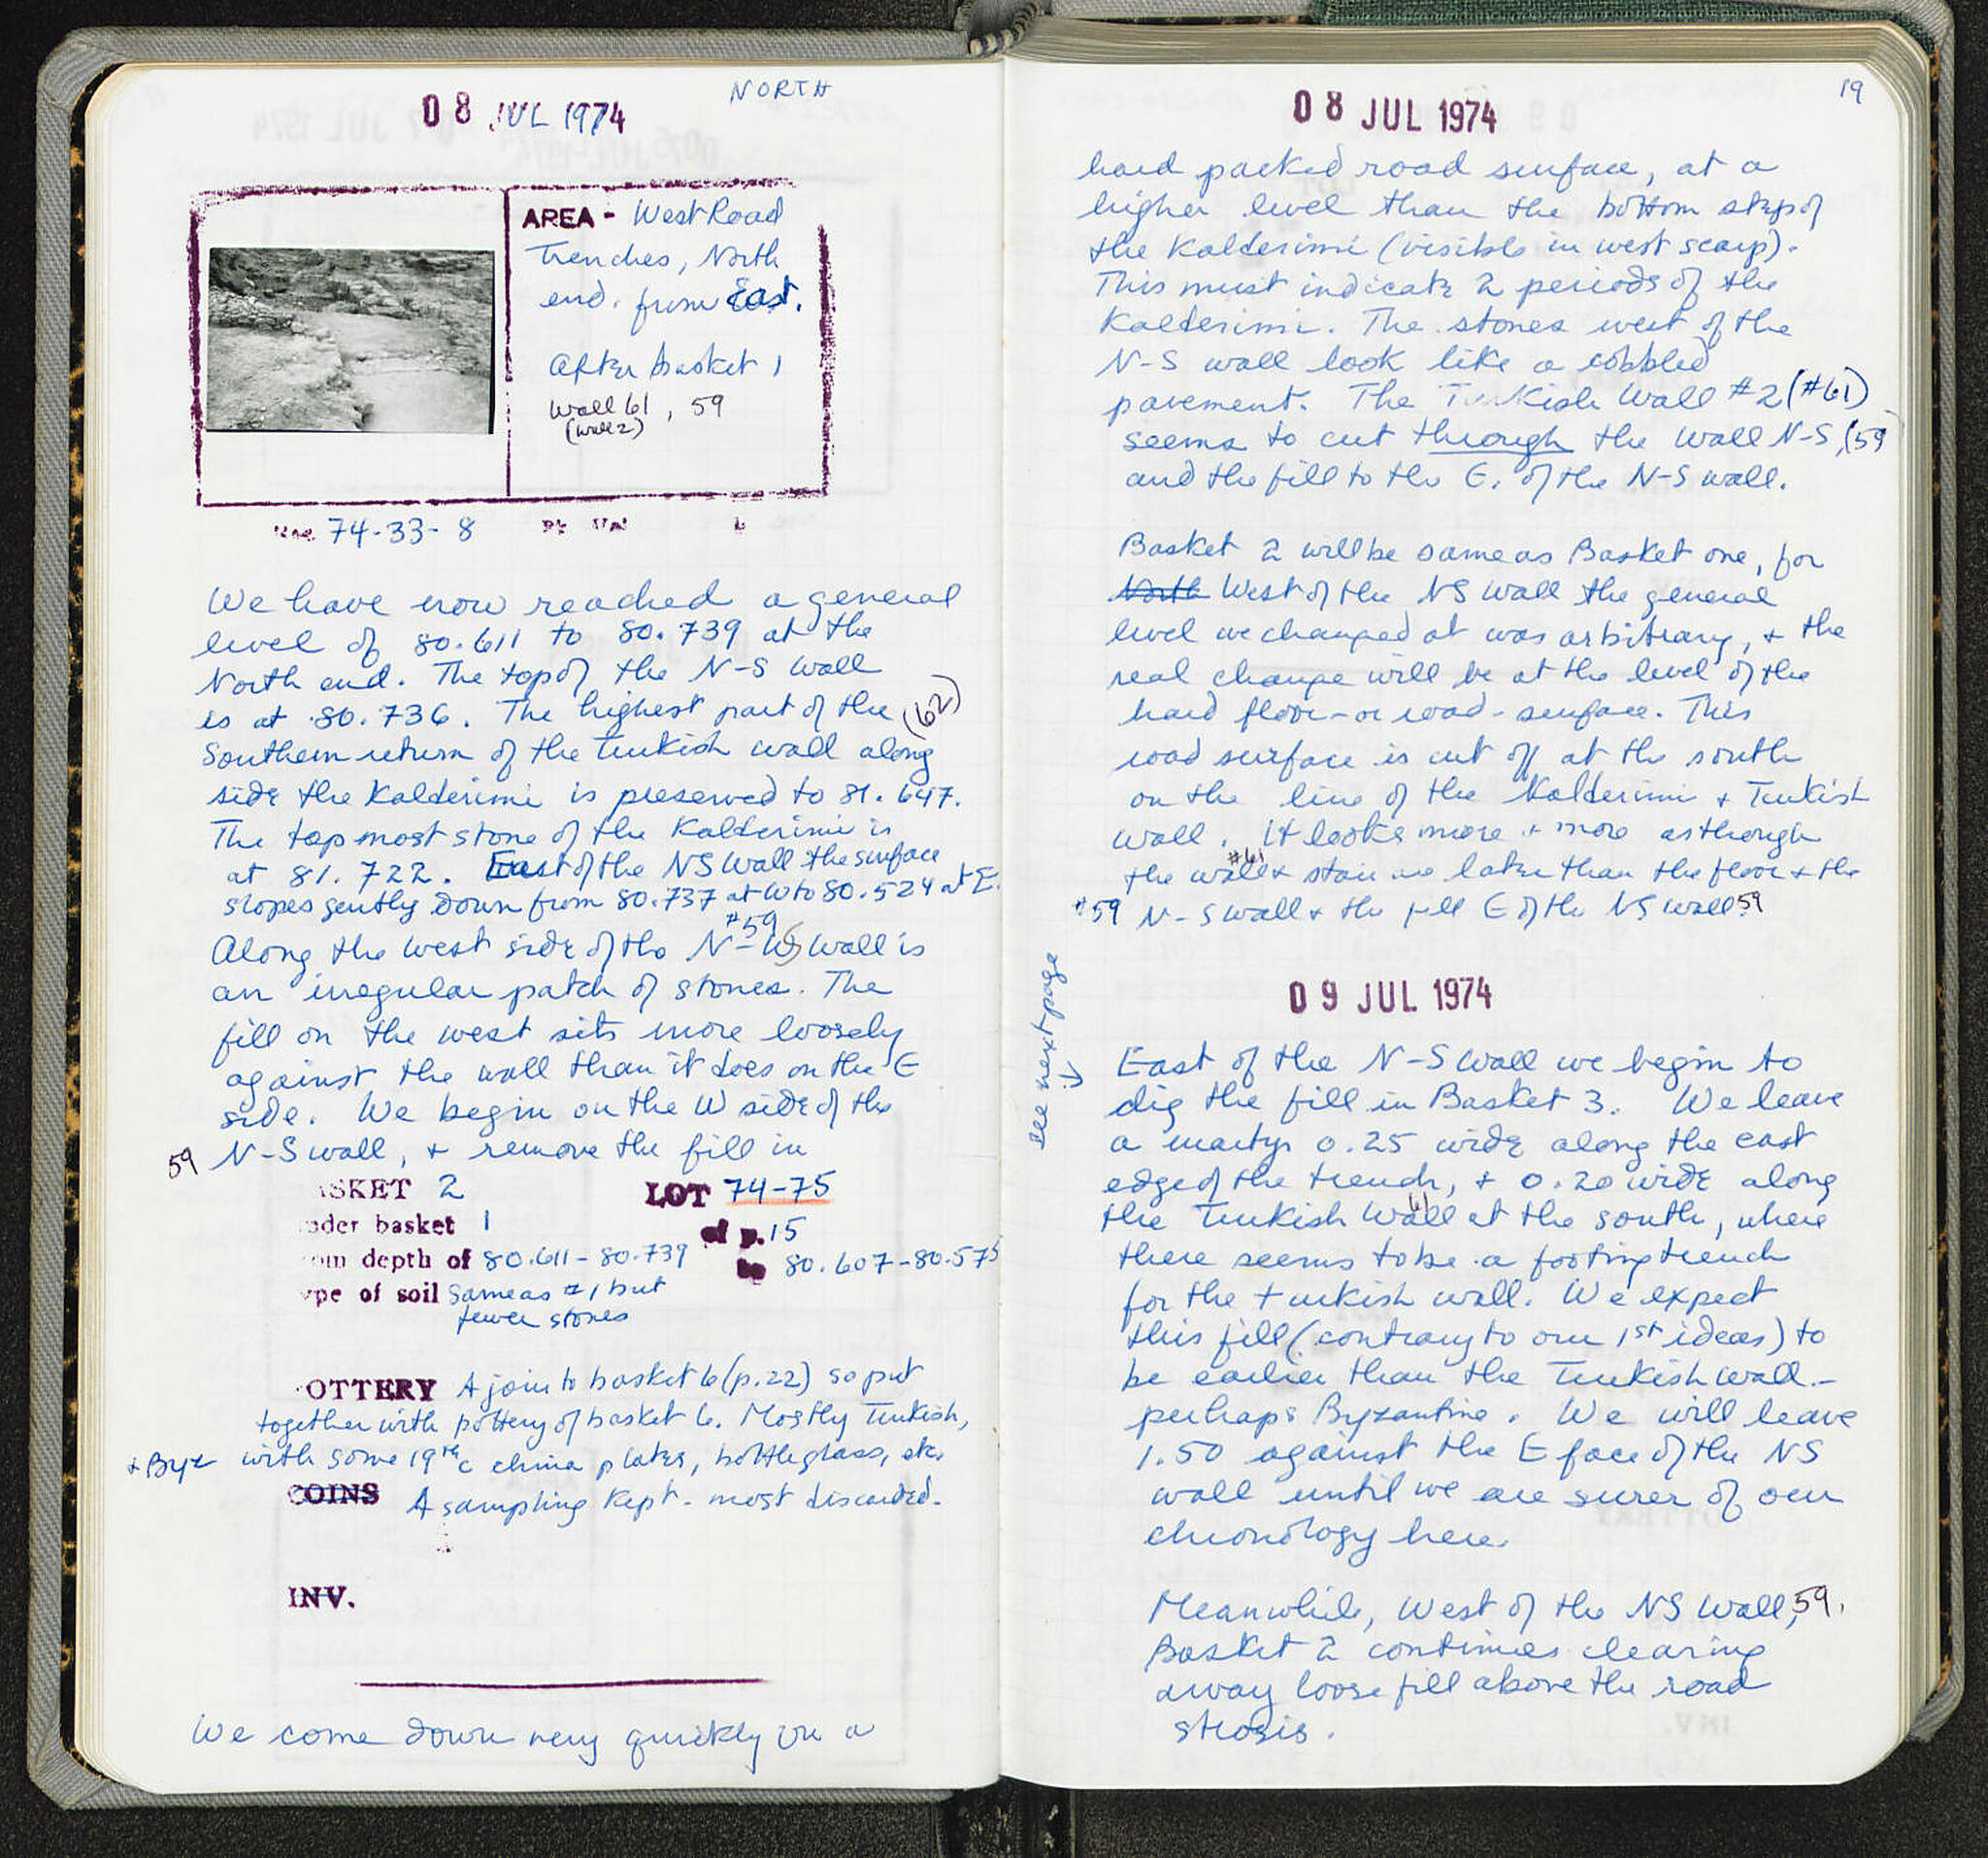 NORTH
08 JUL 1974
AREA - West Road
Trenches, North
end. from East.
After basket 1
Wall 61, 59
(Wall 2)
Neg. 74-33-8
We have now reached a general
level of 80.611 to 80.739 at the
North end. The top of the N-S wall
is at 80.736. The highest part of the (62)
Southern return of the Turkish wall along
side the Kalderimi is preserved to 81.647.
The topmost stone of the Kalderimi is
at 81.722. East of the NS Wall the surface
slopes gently down from 80.737 at W to 80.524 at E.
#59
Along the west side of the N-S wall is
an irregular patch of stones. The
fill on the west sits more loosely
against the wall than it does on the E
side. We begin on the W side of the
59 N-S wall, + remove the fill in
ASKET 2 LOT 74-75
nder basket 1 of p. 15
om depth of 80.611-80.739 to 80.607-80.575
ype of soil Same as #1 but
fewer stones
OTTERY A join to basket 6 (p.22) so put
together with pottery of basket 6. Mostly Turkish,
+ Byz with some 19th c china plates, bottle glass, etc.
COINS A sampling kept - most discarded.
INV.
We come down very quickly on a
19
08 JUL 1974
hard packed road surface, at a
higher level than the bottom step of
the Kalderimi (visible in west scarp).
This must indicate 2 periods of the
Kalderimi. The stones west of the
N-S wall look like a cobbled
pavement. The Turkish Wall #2 (#61)
seems to cut through the wall N-S, (59
and the fill to the E. of the N-S wall.
Basket 2 will be same as Basket one, for
North West of the NS wall the general
level we changed at was arbitrary, + the
real change will be at the level of the
hard floor - or road - surface. This
road surface is cut off at the south
on the line of the Kalderimi + Turkish
wall. It looks more + more as though
#61
the wall + stair are later than the floor + the
#59 N-S wall + the fill E of the NS wall 59
09 JUL 1974
see next page
East of the N-S wall we begin to
dig the fill in Basket 3. We leave
a martyr 0.25 wide along the east
edge of the trench, + 0.20 wide along
61
the Turkish Wall at the south, where
there seems to be a footing trench
for the turkish wall. We expect
this fill (contrary to our 1st ideas) to
be earlier than the Turkish wall -
perhaps Byzantine. We will leave
1.50 against the E face of the NS
wall until we are surer of our
chronology here.
Meanwhile, West of the NS Wall, 59.
Basket 2 continues clearing
away loose fill above the road
strosis.